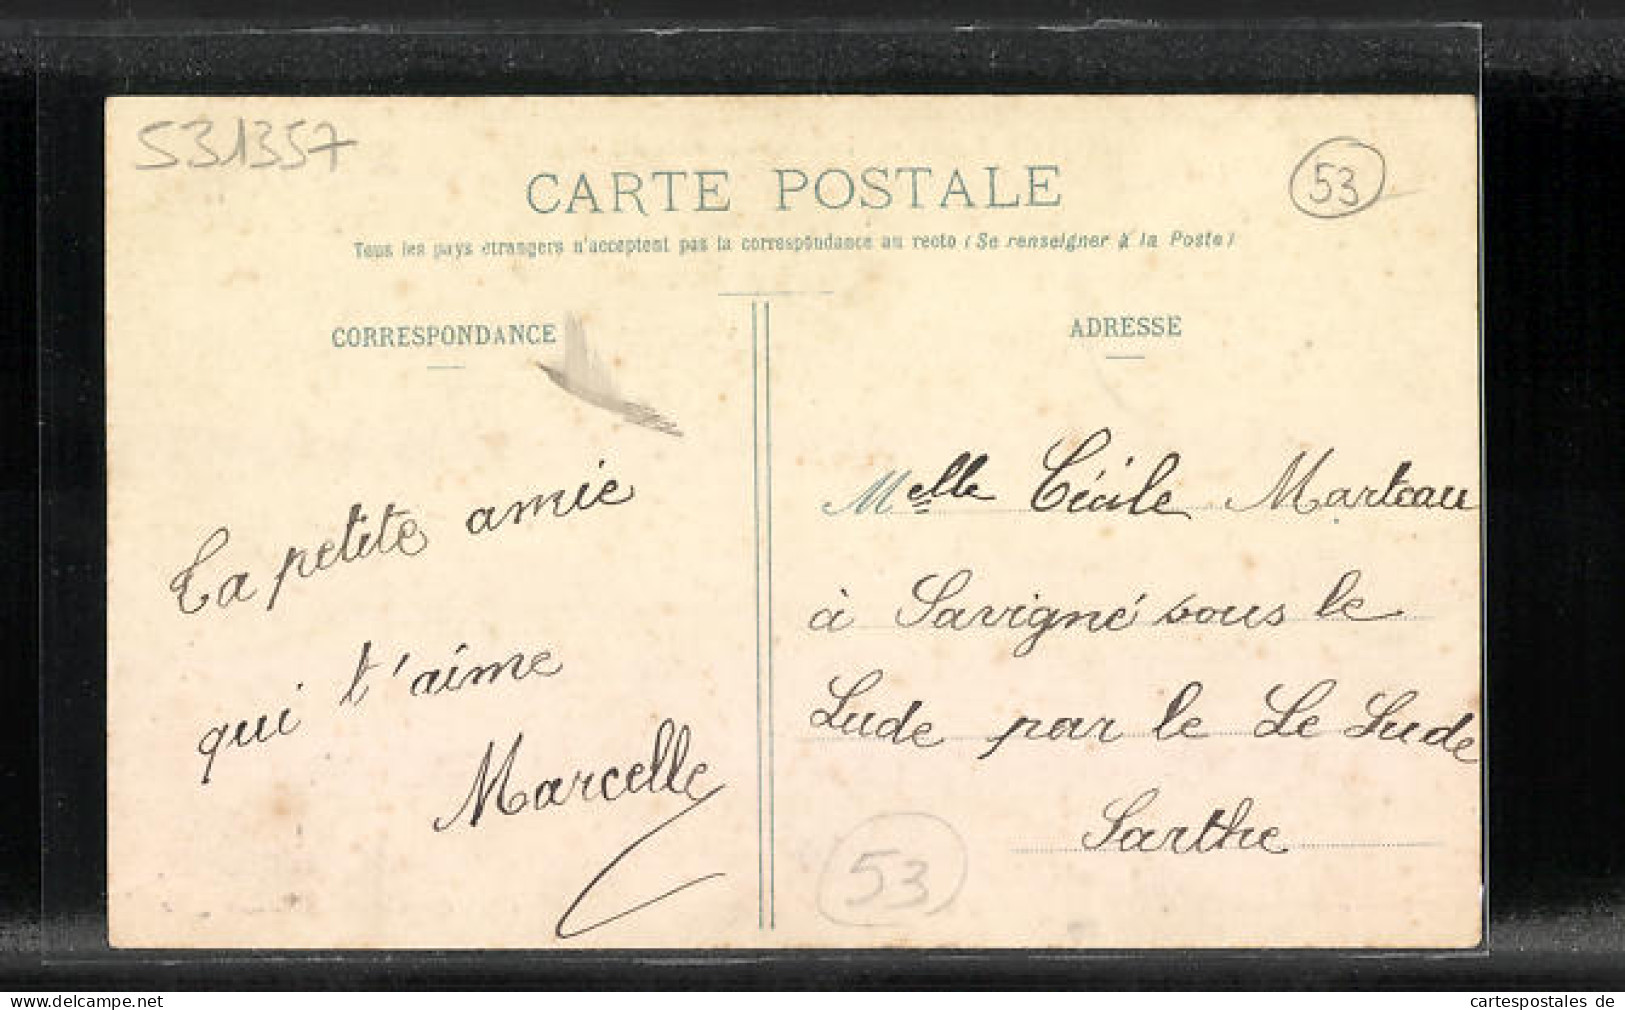 531357
53
CARTE POSTALE
Tous les pays étrangers n'acceptent pas la correspondance au recto (Se renseigner à la Poste)
CORRESPONDANCE
ADRESSE
Ta petite amie
qui t'aime
Marcelle
Melle Cécile Marteau
à Savigné sous le
Lude par le Le Lude
Sarthe
53
www.cartespostales-documents.com
cartespostales de